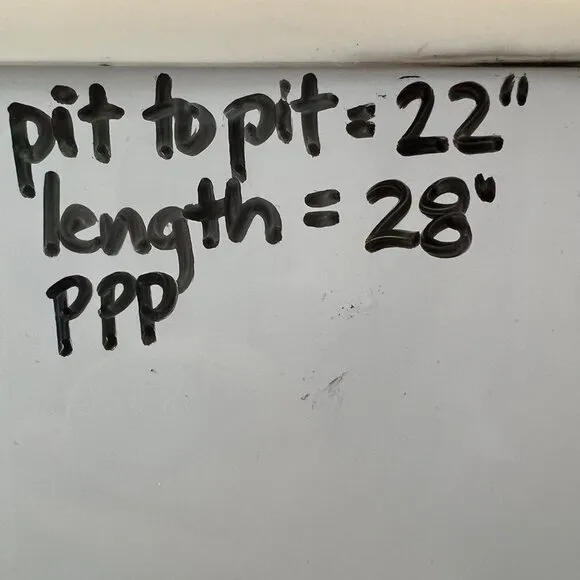 pit to pit = 22"
length = 28"
PPP